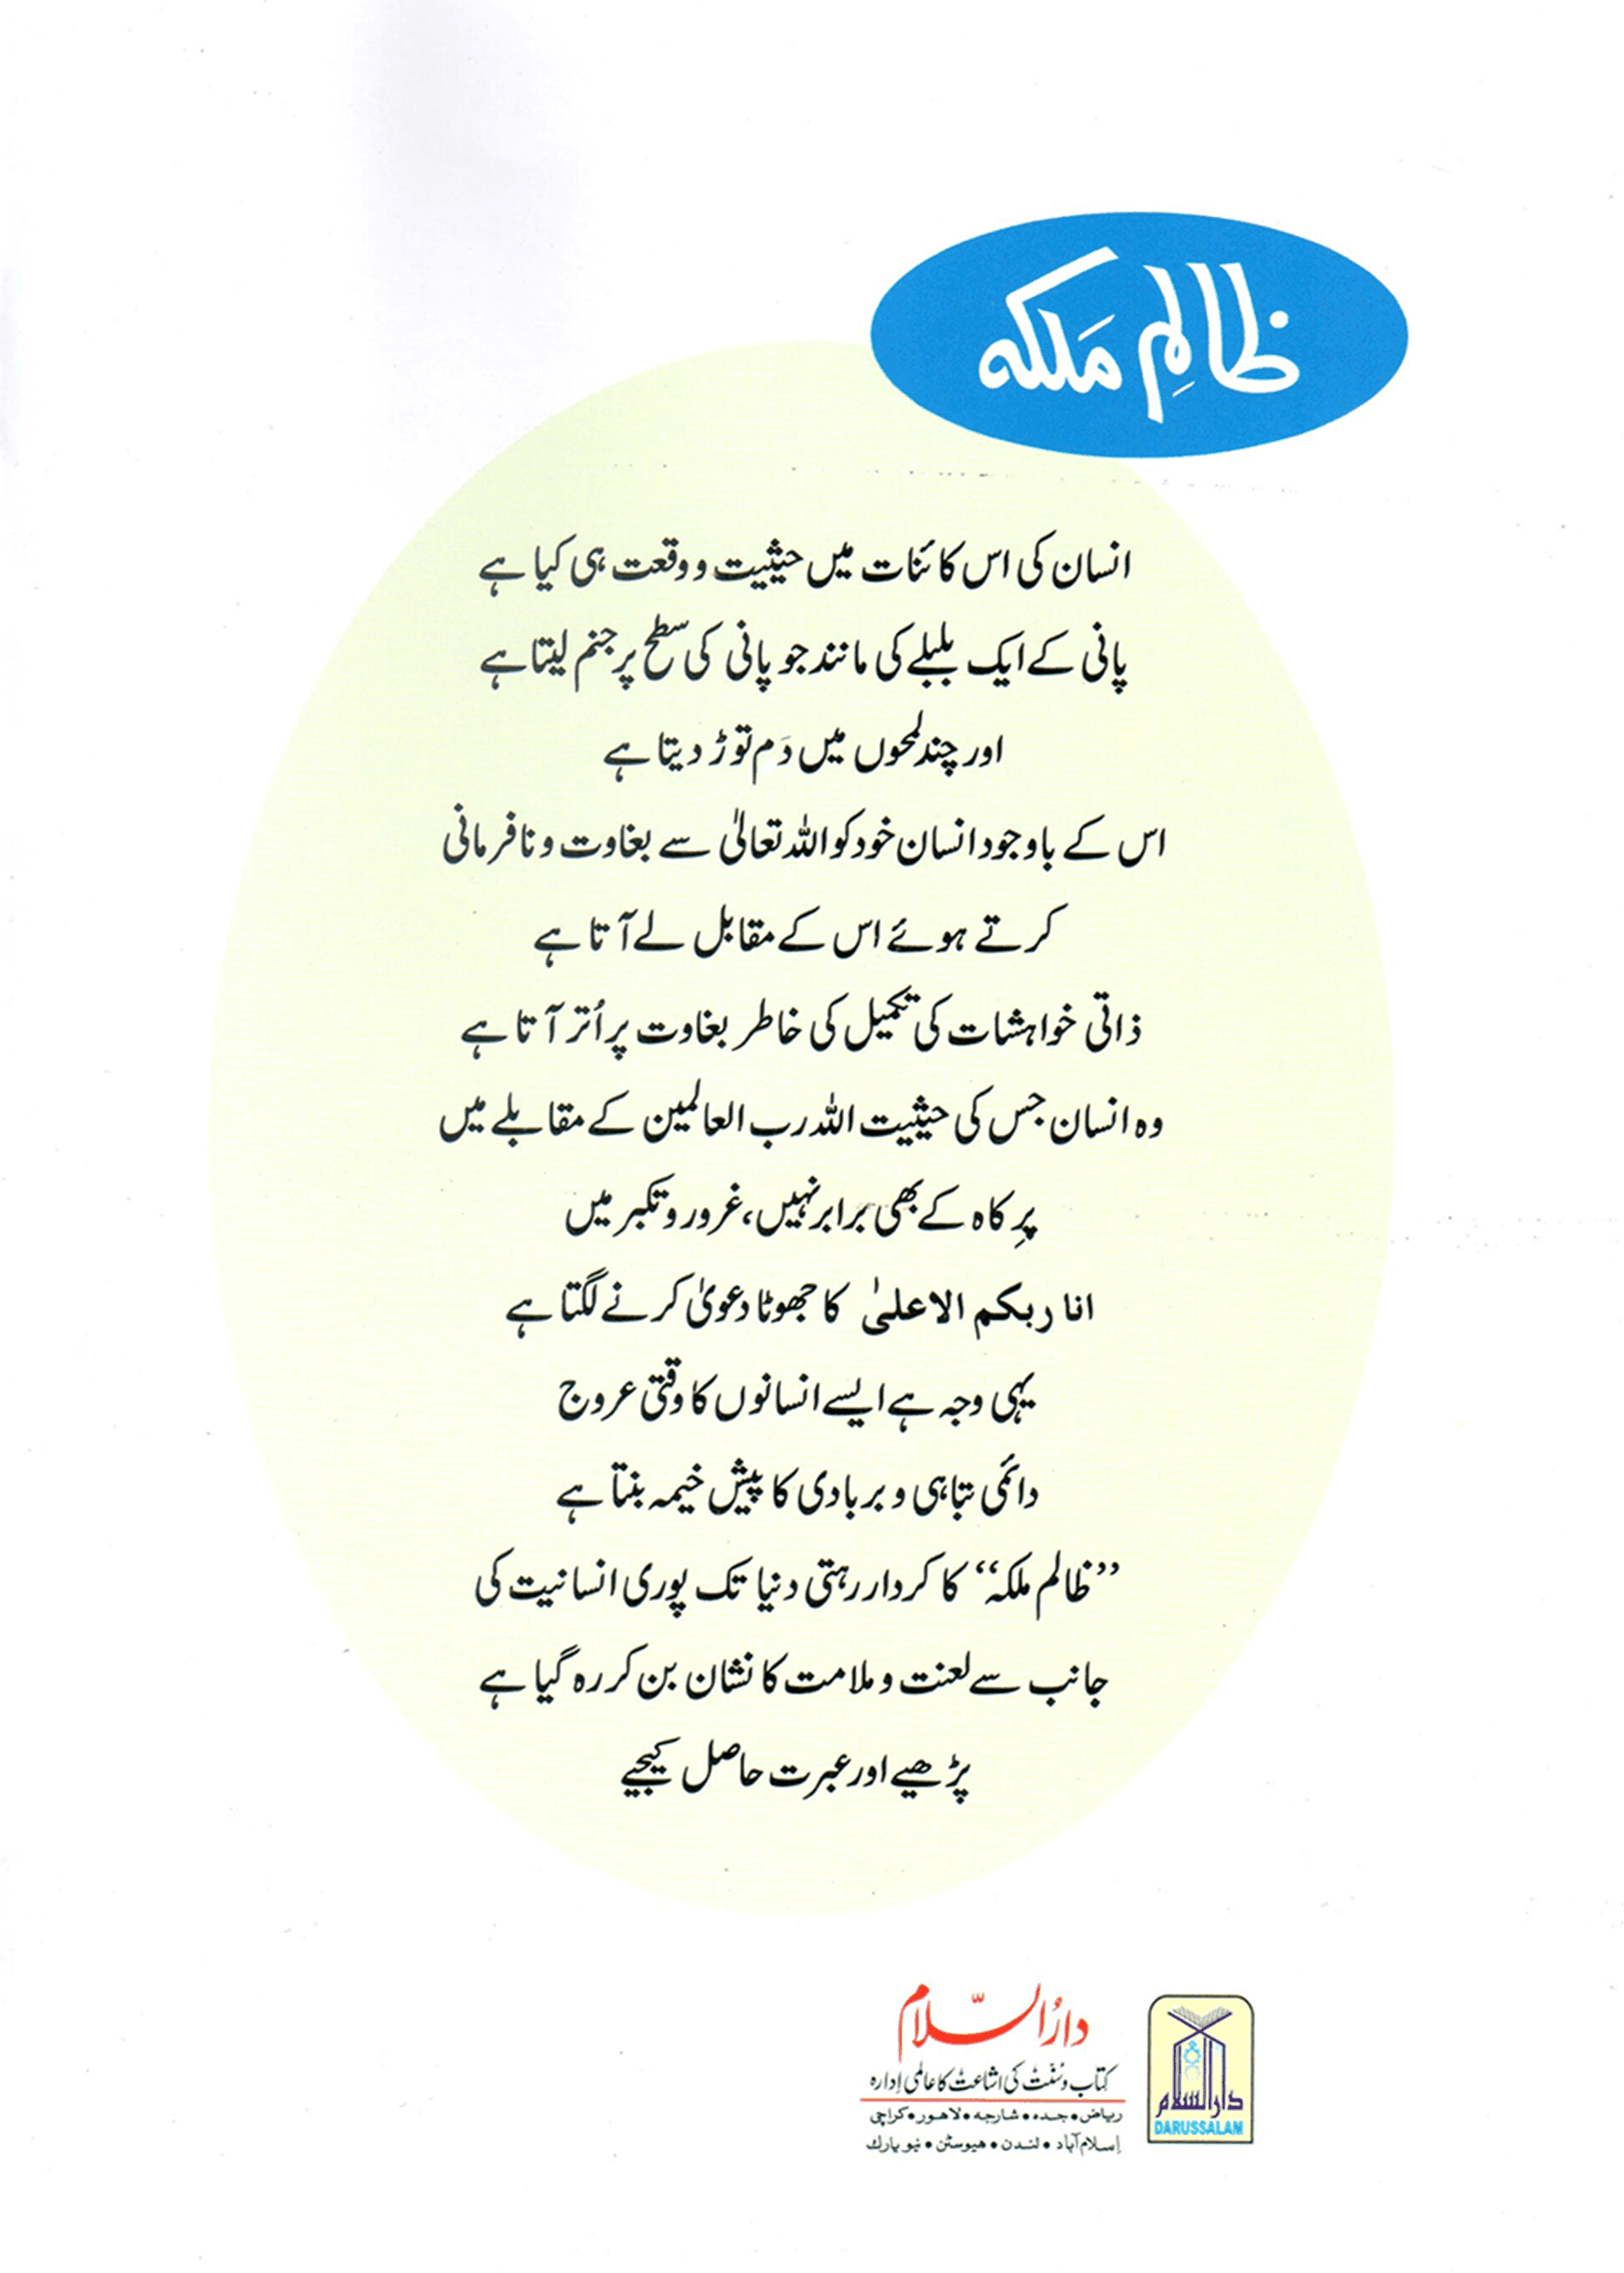 ظالِم مَلکہ
انسان کی اس کائنات میں حیثیت و وقعت ہی کیا ہے
پانی کے ایک بلبلے کی مانند جو پانی کی سطح پر جنم لیتا ہے
اور چند لمحوں میں دَم توڑ دیتا ہے
اس کے باوجود انسان خود کو اللہ تعالیٰ سے بغاوت و نافرمانی
کرتے ہوئے اس کے مقابل لے آتا ہے
ذاتی خواہشات کی تکمیل کی خاطر بغاوت پر اُتر آتا ہے
وہ انسان جس کی حیثیت اللہ رب العالمین کے مقابلے میں
پرِ کاہ کے بھی برابر نہیں، غرور و تکبر میں
انا ربکم الاعلیٰ کا جھوٹا دعویٰ کرنے لگتا ہے
یہی وجہ ہے ایسے انسانوں کا وقتی عروج
دائمی تباہی و بربادی کا پیش خیمہ بنتا ہے
”ظالم ملکہ“ کا کردار رہتی دنیا تک پوری انسانیت کی
جانب سے لعنت و ملامت کا نشان بن کر رہ گیا ہے
پڑھیے اور عبرت حاصل کیجیے
دارُالسّلام
کتاب و سُنّت کی اشاعت کا عالمی اِدارہ
ریاض • جدہ • شارجہ • لاہور • کراچی
اِسلام آباد • لندن • ہیوسٹن • نیو یارک
دارالسلام
DARUSSALAM